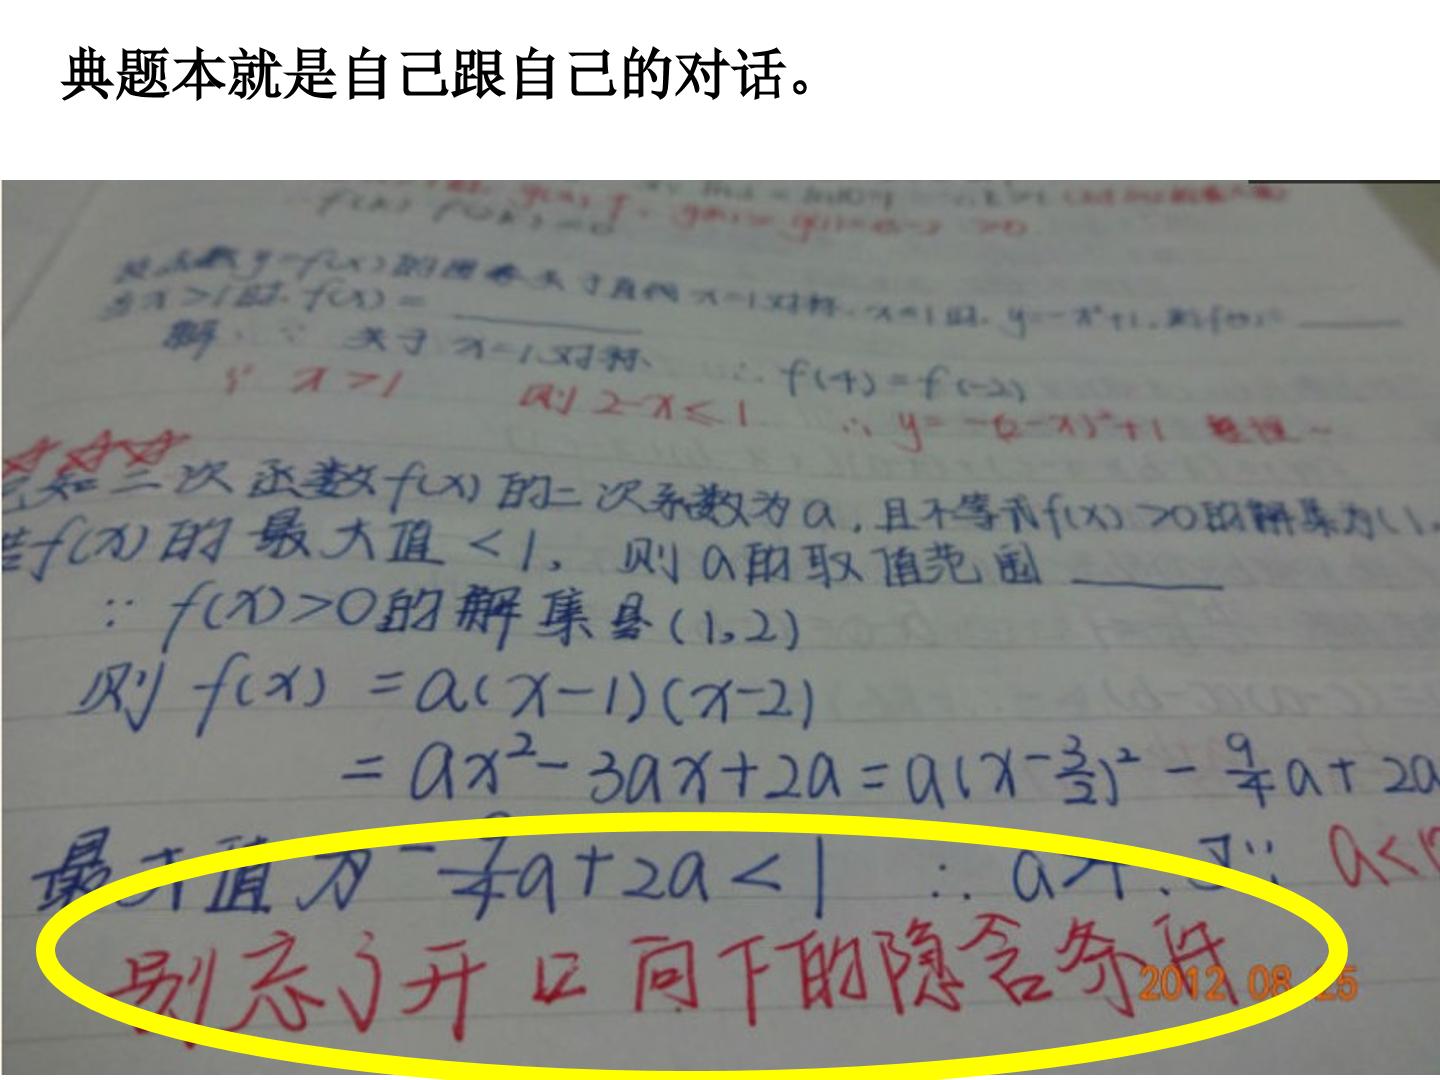 典题本就是自己跟自己的对话。
f(x) f(2k) = 0
函数y=f(x)的图象关于直线x=1对称,x≤1时,y=-x²+1,
当x>1时,f(x)=
解:∵ 关于x=1对称 ∴f(4)=f(-2)
∵ x>1 则2-x≤1 ∴y=-(2-x)²+1
已知二次函数f(x)的二次系数为a,且不等式f(x)>0的解集为(1,
若f(x)的最大值<1,则a的取值范围
∵f(x)>0的解集是(1,2)
则f(x)=a(x-1)(x-2)
=ax²-3ax+2a=a(x-3/2)²-9/4a+2a
最大值为-9/4a+2a<1 ∴a>-4 又∵ a<0
别忘了开口向下的隐含条件
2012 08 25